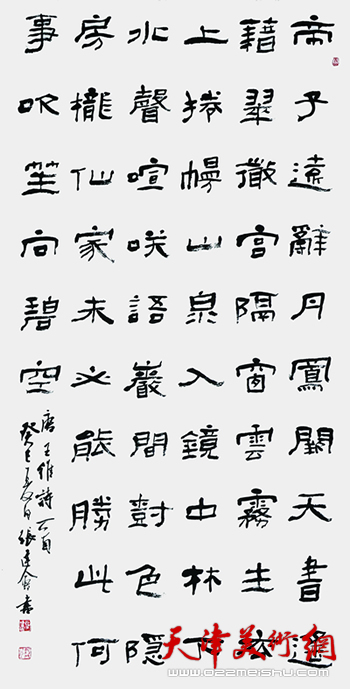 帝子遠辭丹鳳闕天書遙
藉翠微宮隔窗雲霧生衣
上捲幔山泉入鏡中林下
水聲喧咲語巖間對色隱
房櫳仙家未必能勝此何
事吹笙向碧空
唐王維詩一首
癸巳夏日張建會書
天津美術網
www.022meishu.com